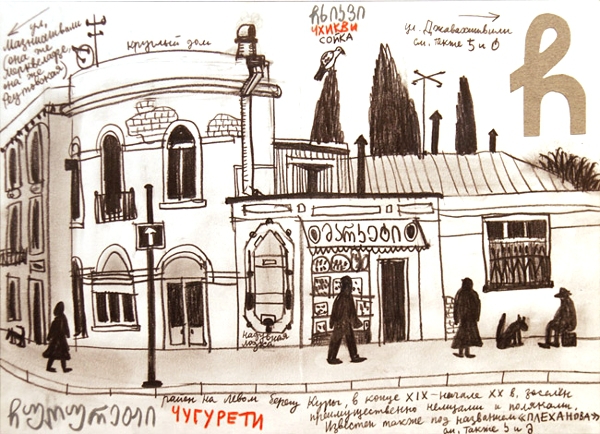 ул.
Мазниашвили
(она же
она же
круглый дом
ჩხიკვი
ЧХИКВИ
СОЙКА
ул. Джавахишвили
см. также 5 и
ჩ
მარკეტი
надувная
лодка
ჩუღურეთი
ЧУГУРЕТИ
район на левом берегу Куры, в конце XIX - начале XX в. заселён
преимущественно немцами и поляками.
Известен также под названием «ПЛЕХАНОВА»
см. также 5 и